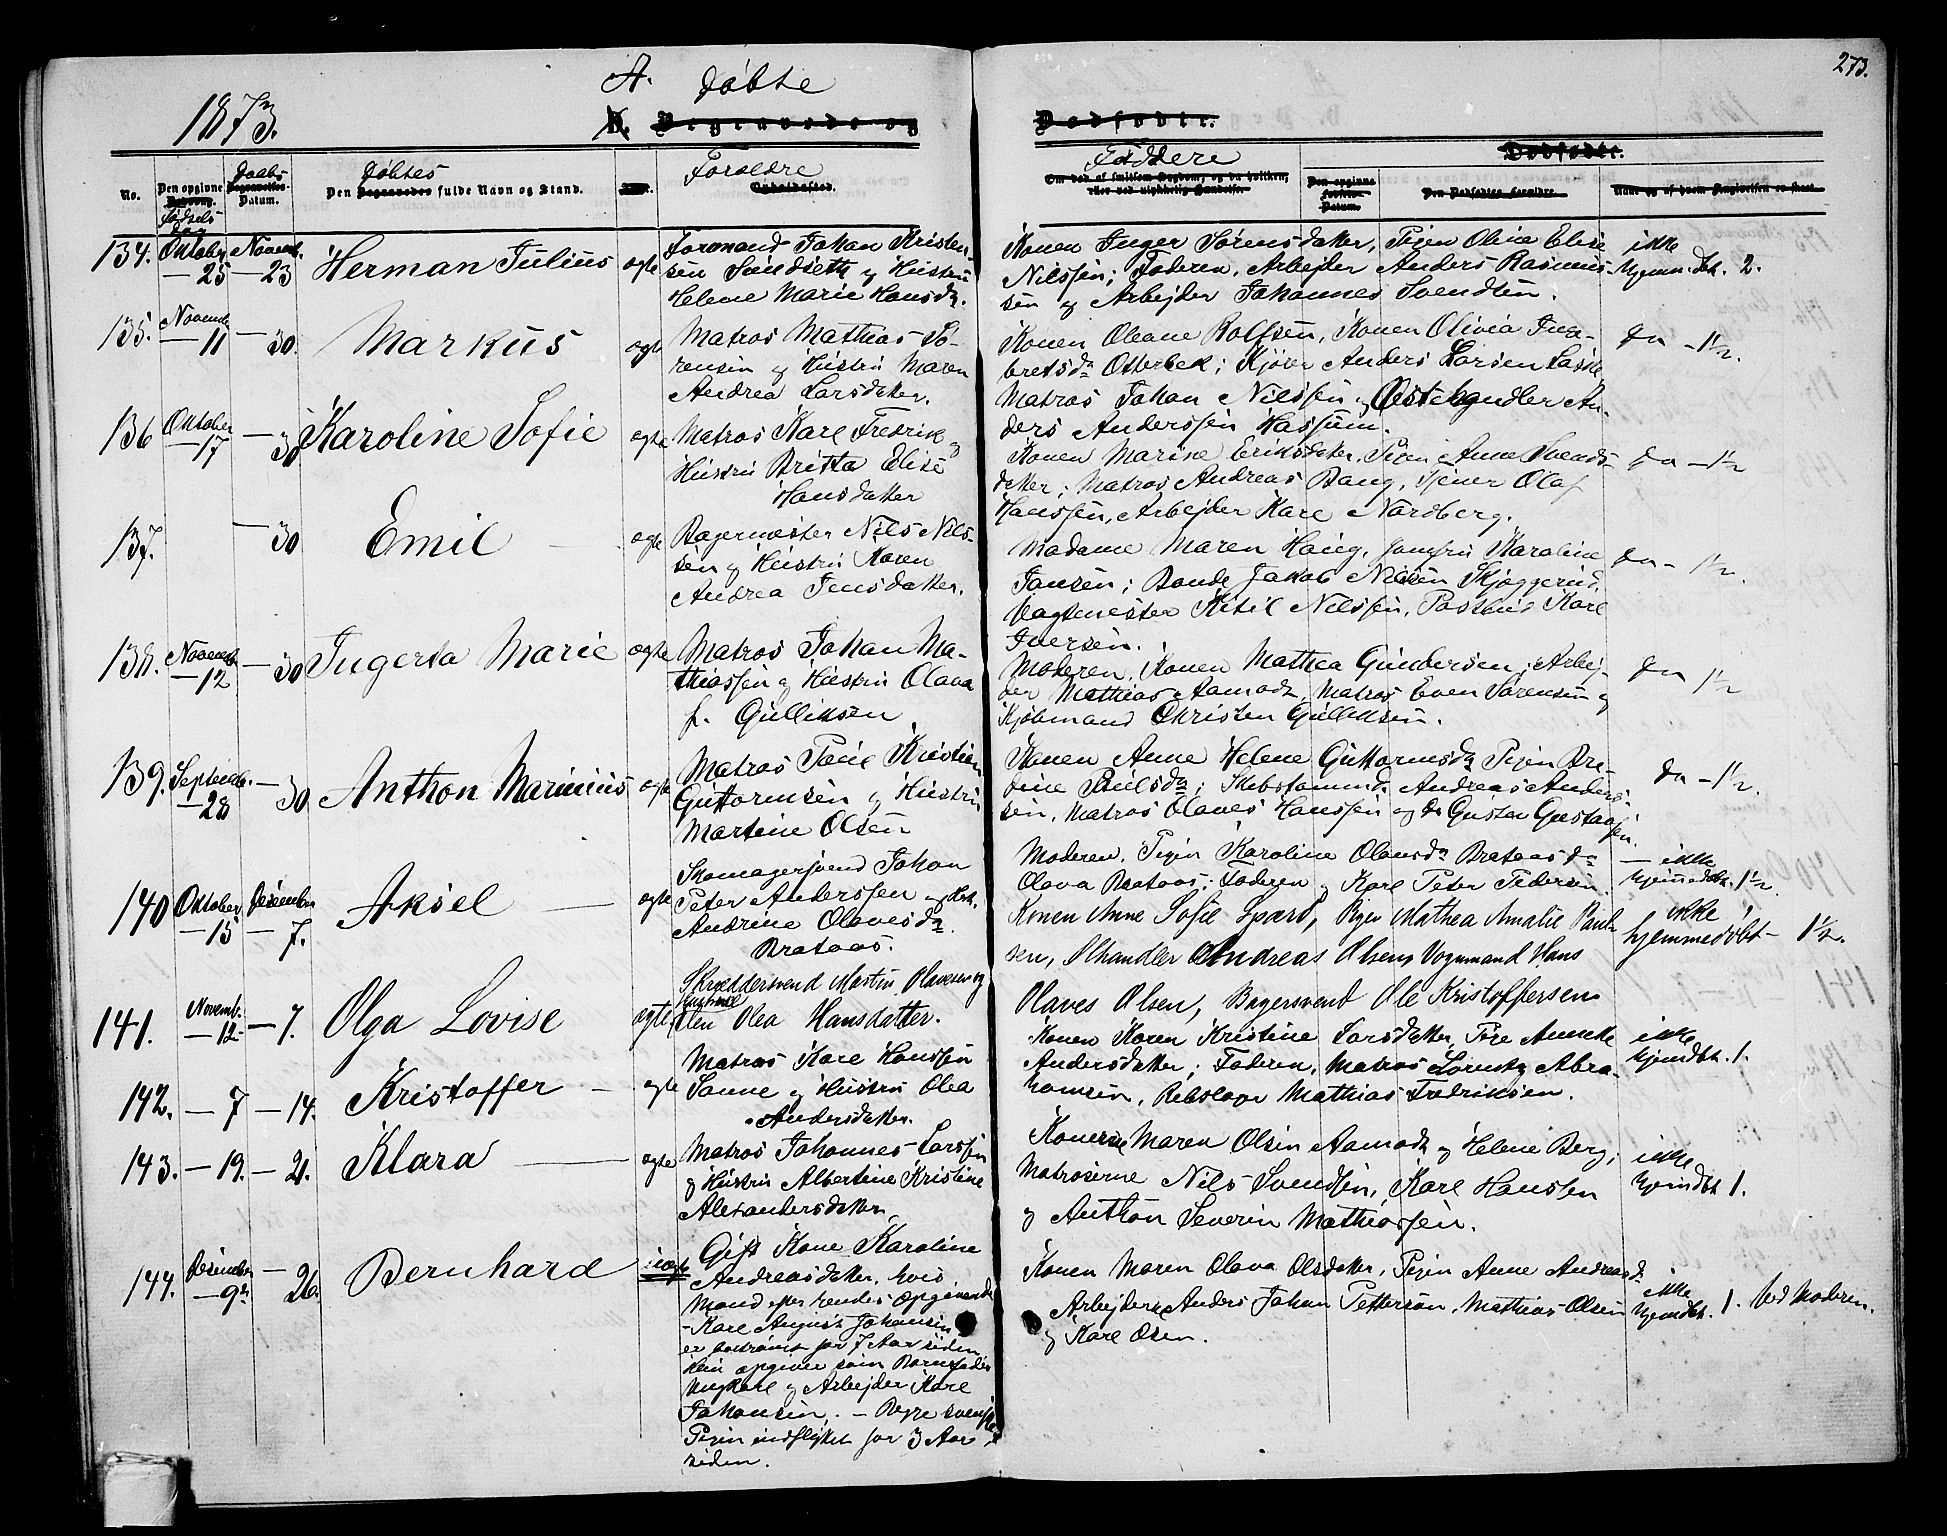 273.
1873.
A. Døbte
D. Begravede og Dødfødte.
No.
Den opgivne Dødsdag.
Fødselsdag
Daabs
Begravelses-Datum.
Døbtes
Den Begravedes fulde Navn og Stand.
Forældre
Opholdssted.
Faddere
Om død af smitsom Sygdom, og da hvilken, eller ved ulykkelig Hændelse.
Dødfødte.
Den opgivne Fødsels-Datum.
Den Dødfødtes Forældre.
Naar og af hvem Angivelsen er skeet.
134. Oktober 25 Novemb. 23 Herman Julius ægte
Formand Johan Kristen-
sen Sundseth og Hustru
Helene Marie Hansdr.
Konen Inger Sørensdatter, Pigen Olina Elise
Nilssen; Faderen, Arbejder Anders Rasmus-
sen og Arbejder Johannes Svendsen.
ikke
hjem. døbt. 2.
135. Novemb 11 — 30. Markus ægte
Matros Mathias Sø-
rensen og Hustru Maren
Andrea Larsdatter.
Konen Oleane Rolfsen, Konen Olivia Inge-
bretsdr Otterbek; Kjører Anders Larsen
Matros Johan Nilssen og Ostehandler An-
ders Anderssen Hassum.
Do — 1½.
136 Oktober 17 — 30 Karoline Sofie ægte
Matros Karl Fredrik og
Hustru Britta Elise
Hansdatter
Konen Marine Eriksdatter, Pigen Anne Svends-
datter; Matros Andreas Bang, Tjener Olaf
Hanssen, Arbejder Karl Nordberg.
Do — 1½
137. — 30 Emil — ægte
Bagermester Nils Nils-
sen og Hustru Karen
Andrea Jensdatter.
Madame Maren Haug, Jomfru Karoline
Jansen; Bonde Jakob Nilsen Skjøggerud
Vagtmester Ketil Nilssen, Postbud Karl
Iversen.
Do — 1½.
138. Novemb 12 — 30 Ingerta Marie ægte
Matros Johan Ma-
thiassen og Hustru Olava
f. Gulliksen.
Moderen, Konen Mathea Gundersen; Arbej-
der Mathias Aamodt, Matros Even Sørensen og
Kjøbmand Christen Gulliksen.
Do 1½
139. Septemb. 28 — 30 Anthon Marinius ægte
Matros Paul Kristian
Guttormsen og Hustru
Martine Olsen
Konen Anne Helene Guttormsdr Pigen Bre-
dine Paulsdr; Skibstømmermd. Andreas Anders-
sen, Matros Olaves Hanssen og do Gustav Gustavsen.
Do — 1½.
140 Oktober 15 Desember 7. Aksel — ægte
Skomagersvend Johan
Peter Anderssen og Hst.
Andrine Olavesdr.
Brataas.
Moderen, Pigen Karoline Olausdr Brataas do
Olava Brataas; Faderen og Karl Peter Pedersen.
— ikke
hjemmedøbt. 1½.
141. Novemb. 12 — 7. Olga Lovise ægte
Skræddersvend Martin Olavesen og
Hustru
Elen Olea Hansdatter.
Konen Anne Sofie Sværd, Pigen Mathea Amalie Paul-
sen, Ølhandler Andreas Olsen, Vognmand Hans
Olaves Olsen, Bagersvend Ole Kristoffersen
ikke
hjemmedøbt — 1½.
142. — 7 — 14. Kristoffer — ægte
Matros Karl Hanssen
Sanne og Hustru Olea
Andersdatter.
Konen Karen Kristine Larsdatter, Pige Annette
Andersdatter; Faderen, Matros Lorentz Abra-
hamsen, Rebslager Mathias Fredriksen.
ikke
hjemdbt. 1.
143. — 19. — 21. Klara — ægte
Matros Johannes Larssen
og Hustru Albertine Kristine
Alexandersdatter
Konerne Maren Olsen Aamodt og Helene Berg;
Matroserne Nils Svendsen, Karl Hanssen
og Anthon Severin Mathiassen.
ikke
hjemdbt 1.
144. Desember 9de — 26. Bernhard uægte
Gift Kone Karoline
Andreasdatter, hvis
Mand efter hendes Opgivende
Karl August Johansen
er bortrømt for 7 Aar siden
Hun opgiver som Barnefader
Ungkarl og Arbejder Karl
Johansen. — Begge svenske
Pigen indflyttet for 3 Aar
siden.
Konen Maren Olava Olsdatter, Pigen Anne Andreasd.
Arbejderne Anders Johan Pettersen, Mathias Olsen
og Karl Olsen.
ikke
hjemdbt. 1. Ved Moderen.